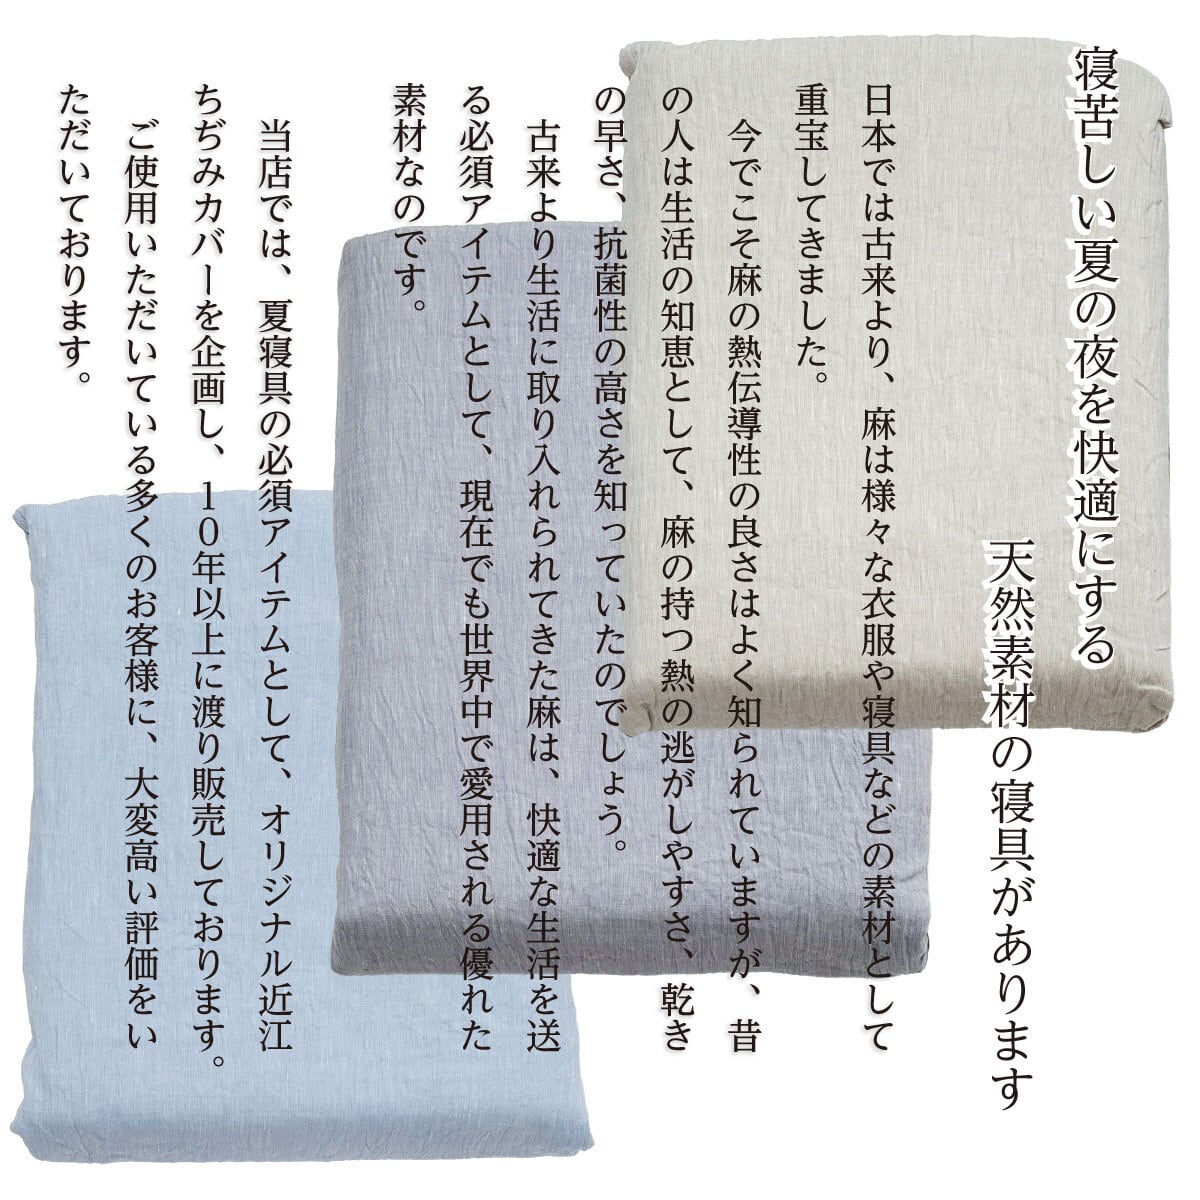 寝苦しい夏の夜を快適にする
天然素材の寝具があります
日本では古来より、麻は様々な衣服や寝具などの素材として
重宝してきました。
今でこそ麻の熱伝導性の良さはよく知られていますが、昔
の人は生活の知恵として、麻の持つ熱の逃がしやすさ、乾き
の早さ、抗菌性の高さを知っていたのでしょう。
古来より生活に取り入れられてきた麻は、快適な生活を送
る必須アイテムとして、現在でも世界中で愛用される優れた
素材なのです。
当店では、夏寝具の必須アイテムとして、オリジナル近江
ちぢみカバーを企画し、10年以上に渡り販売しております。
ご使用いただいている多くのお客様に、大変高い評価をい
ただいております。